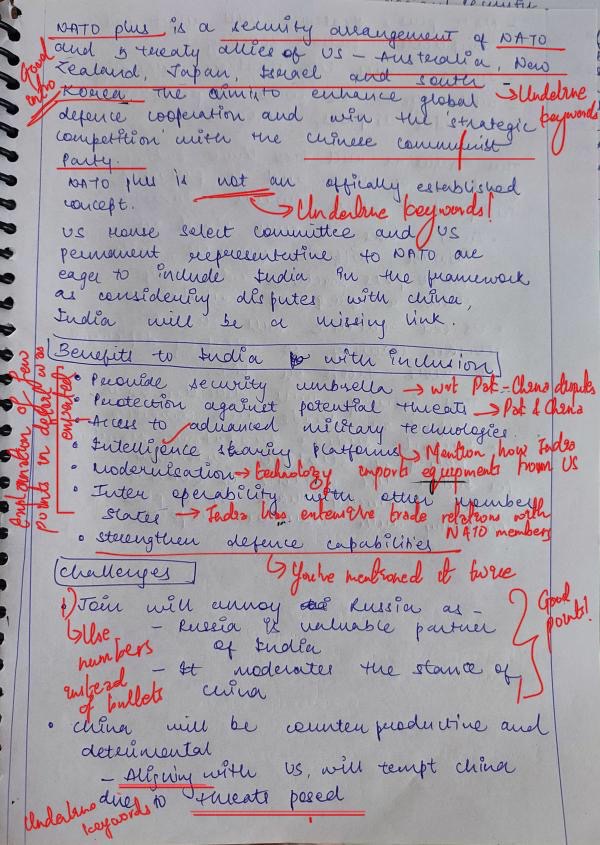 NATO plus is a security arrangement of NATO
and 5 treaty allies of US - Australia, New
Zealand, Japan, Israel and south
Korea. the aim is to enhance global
defence cooperation and win the 'strategic
competition' with the Chinese communist
Party.
Good intro
→ Underline keywords!
NATO plus is not an offically established
concept.
→ Underline keywords!
US House select committee and US
permanent representative to NATO are
eager to include India in the framework
as considering disputes with china,
India will be a missing link.
Benefits to India with inclusion
Explanation of few points in detail was expected
• Provide security umbrella → wrt Pak-China disputes
• Protection against potential threats → Pak & China
• Access to advanced military technologies.
• Intelligence sharing platforms → Mention how India
• Modernisation → technology imports equipments from US
• Inter operability with other member
states → India has extensive trade relations with
NATO members
• strengthen defence capabilities
→ You've mentioned it twice
Challenges
1) Join will annoy Russia as -
- Russia is valuable partner
of India
- It moderates the stance of
china
→ Use numbers instead of bullets
Good points!
• China will be counter productive and
detrimental
- Aligning with US, will tempt china
due to threats posed
Underline keywords